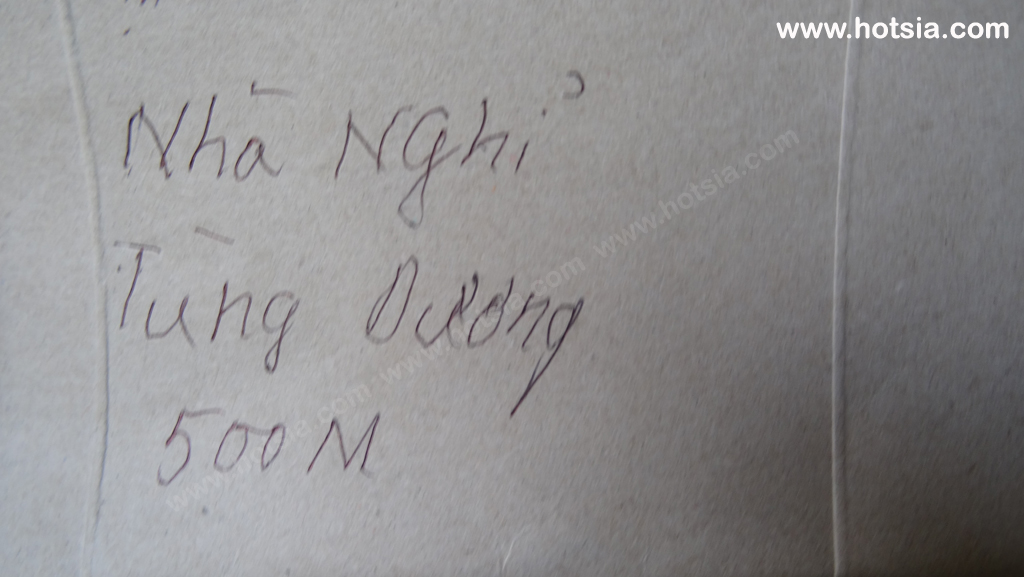 www.hotsia.com
Nhà NGhỉ
Tùng Dương
500 M
www.hotsia.com www.hotsia.com www.hotsia.com